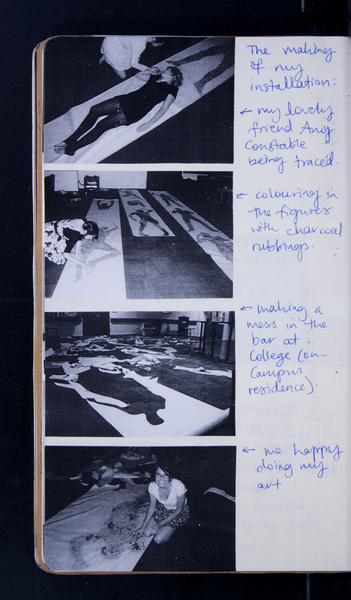 The making
of my
installation:
← my lovely
friend Amy
Constable
being traced.
← colouring in
the figures
with charcoal
rubbings.
← making a
mess in the
bar at
College (on-
Campus
residence).
← me happy
doing my
art.